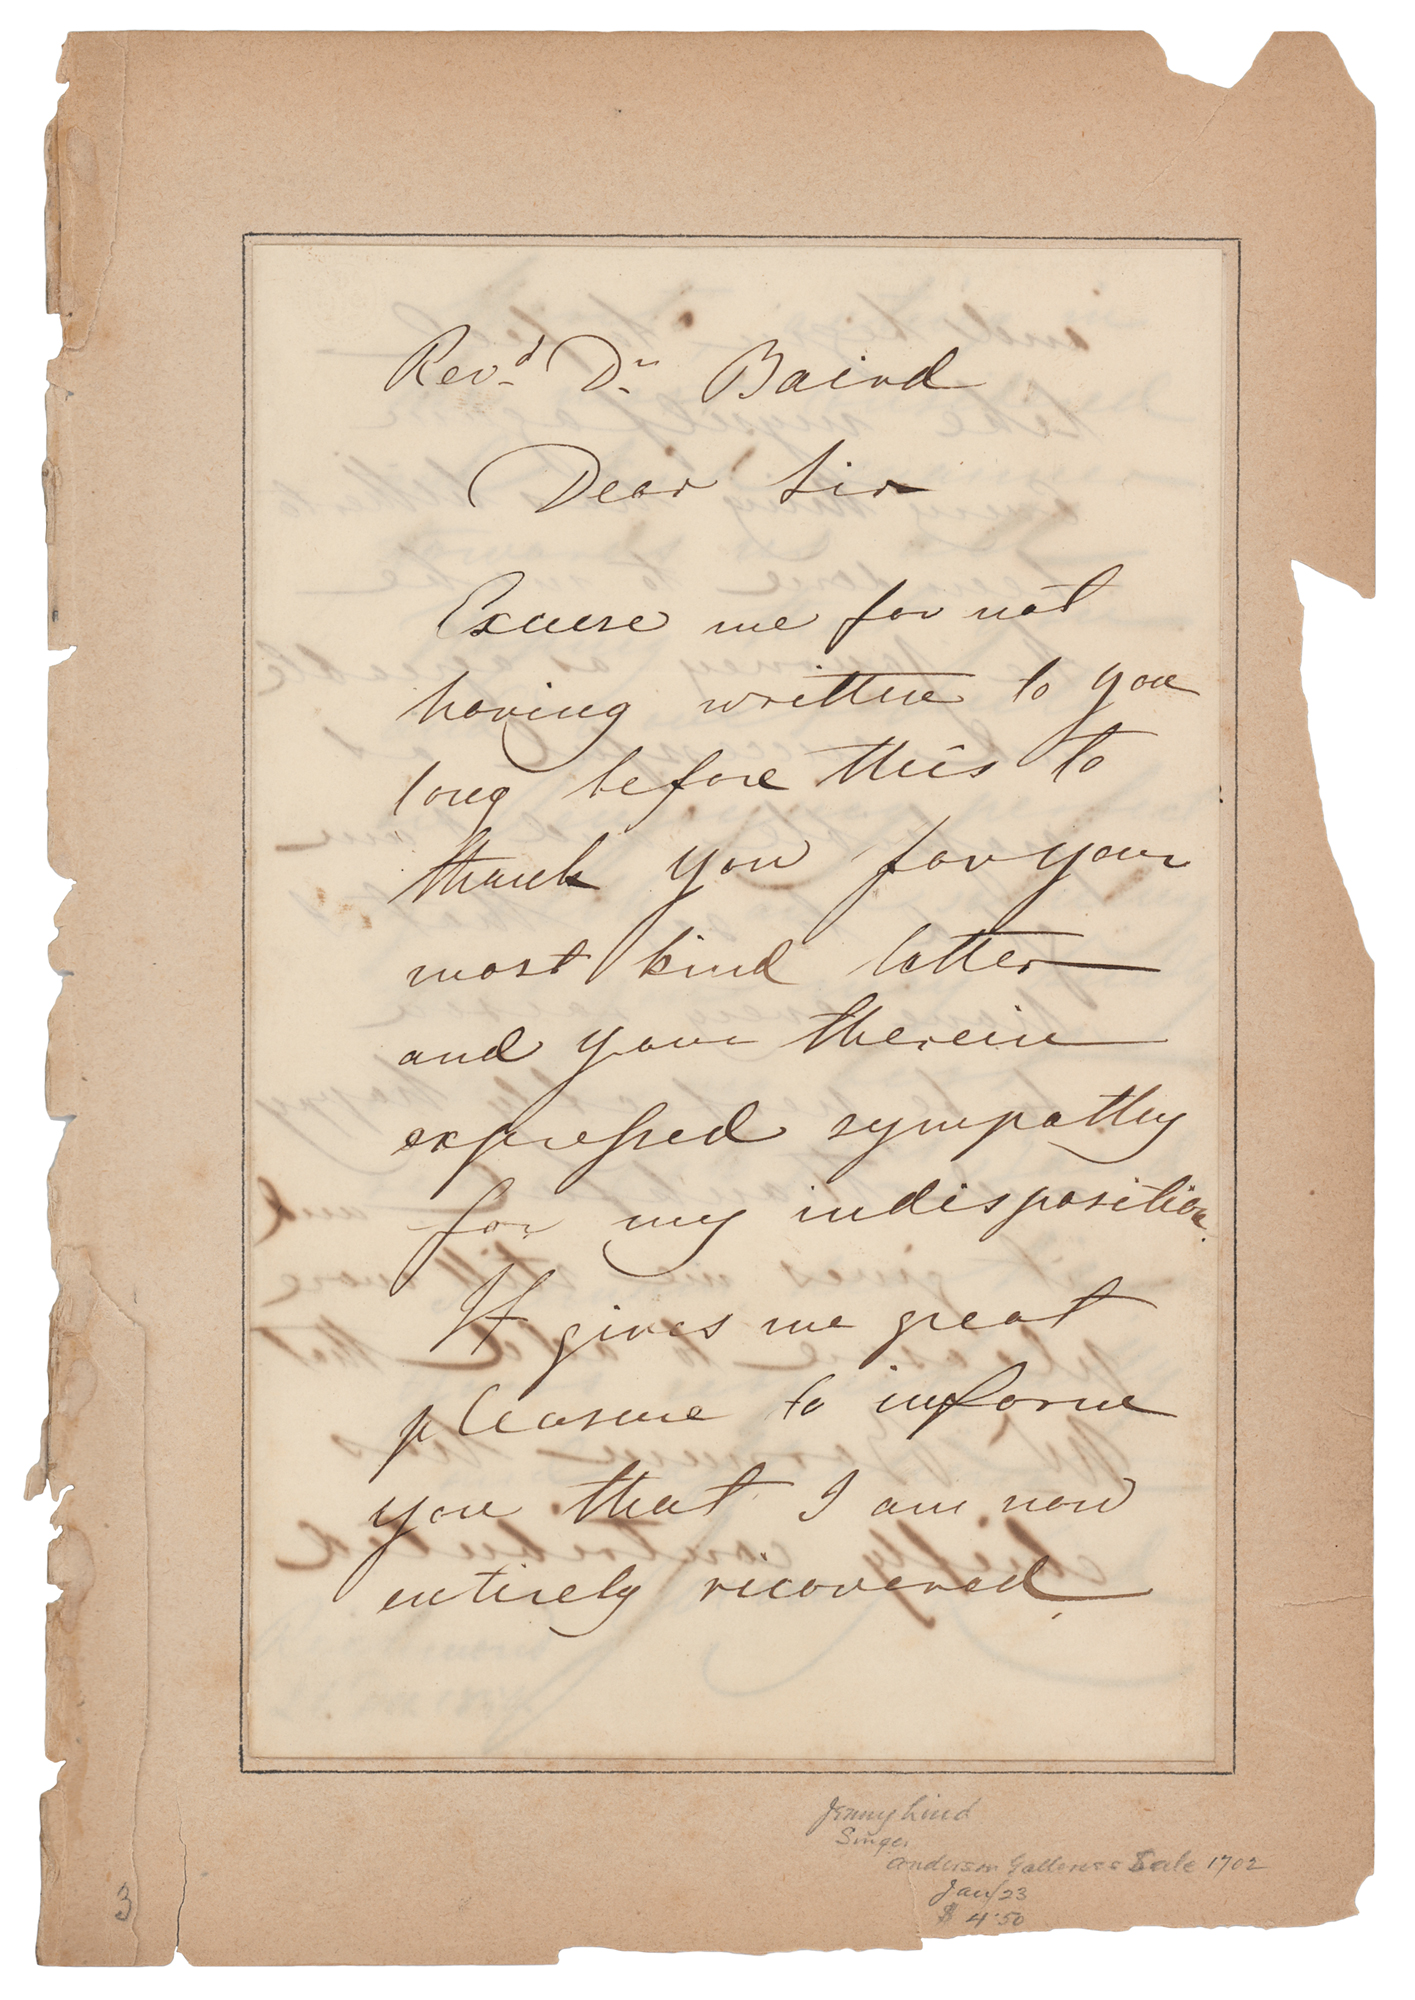 Revd Dr Baird
Dear Sir
Excuse me for not
having written to you
long before this to
thank you for your
most kind letter
and your therein
expressed sympathy
for my indisposition.
It gives me great
pleasure to inform
you that I am now
entirely recovered,
Jenny Lind
Singer
Anderson Galleries Sale 1702
Jan/23
$ 4.50
3